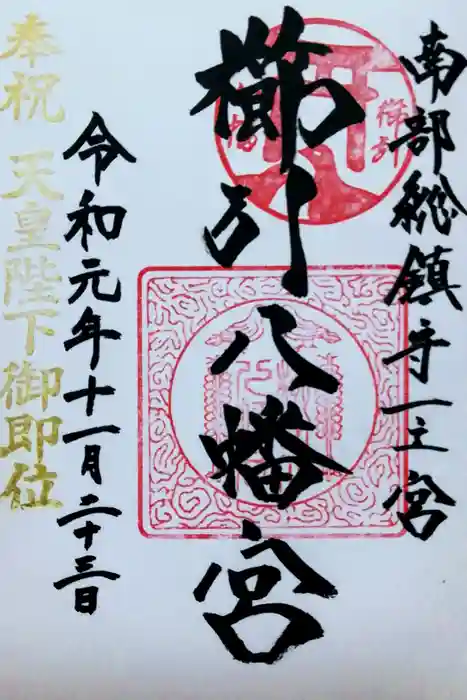 南部総鎮守一之宮
櫛引八幡宮
令和元年十一月二十三日
奉祝 天皇陛下御即位